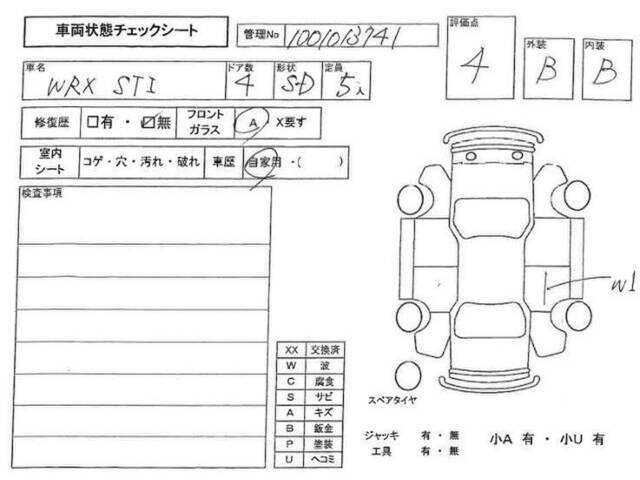 車両状態チェックシート
管理No 1001013741
評価点 4
外装 B
内装 B
車名 WRX STI
ドア数 4
形状 S-D
定員 5人
修復歴 □有・☑無
フロントガラス A X要す
室内シート コゲ・穴・汚れ・破れ
車歴 自家用・( )
検査事項
W1
XX 交換済
W 波
C 腐食
S サビ
A キズ
B 鈑金
P 塗装
U ヘコミ
スペアタイヤ
ジャッキ 有・無
工具 有・無
小A 有・小U 有